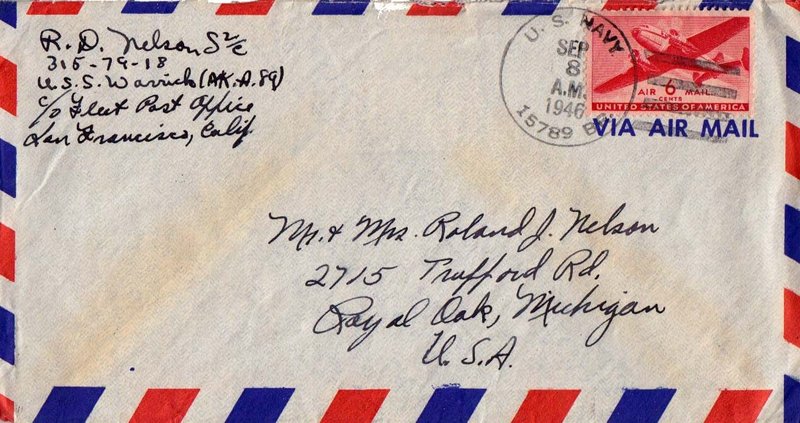 R. D. Nelson S 2/c
315-79-18
U.S.S. Warrick (AKA 89)
c/o Fleet Post Office
San Francisco, Calif.
U. S. NAVY
SEP
8
A.M.
1946
15789 BR.
AIR 6 MAIL
CENTS
UNITED STATES OF AMERICA
VIA AIR MAIL
Mr. & Mrs. Roland J. Nelson
2715 Trafford Rd.
Royal Oak, Michigan
U.S.A.